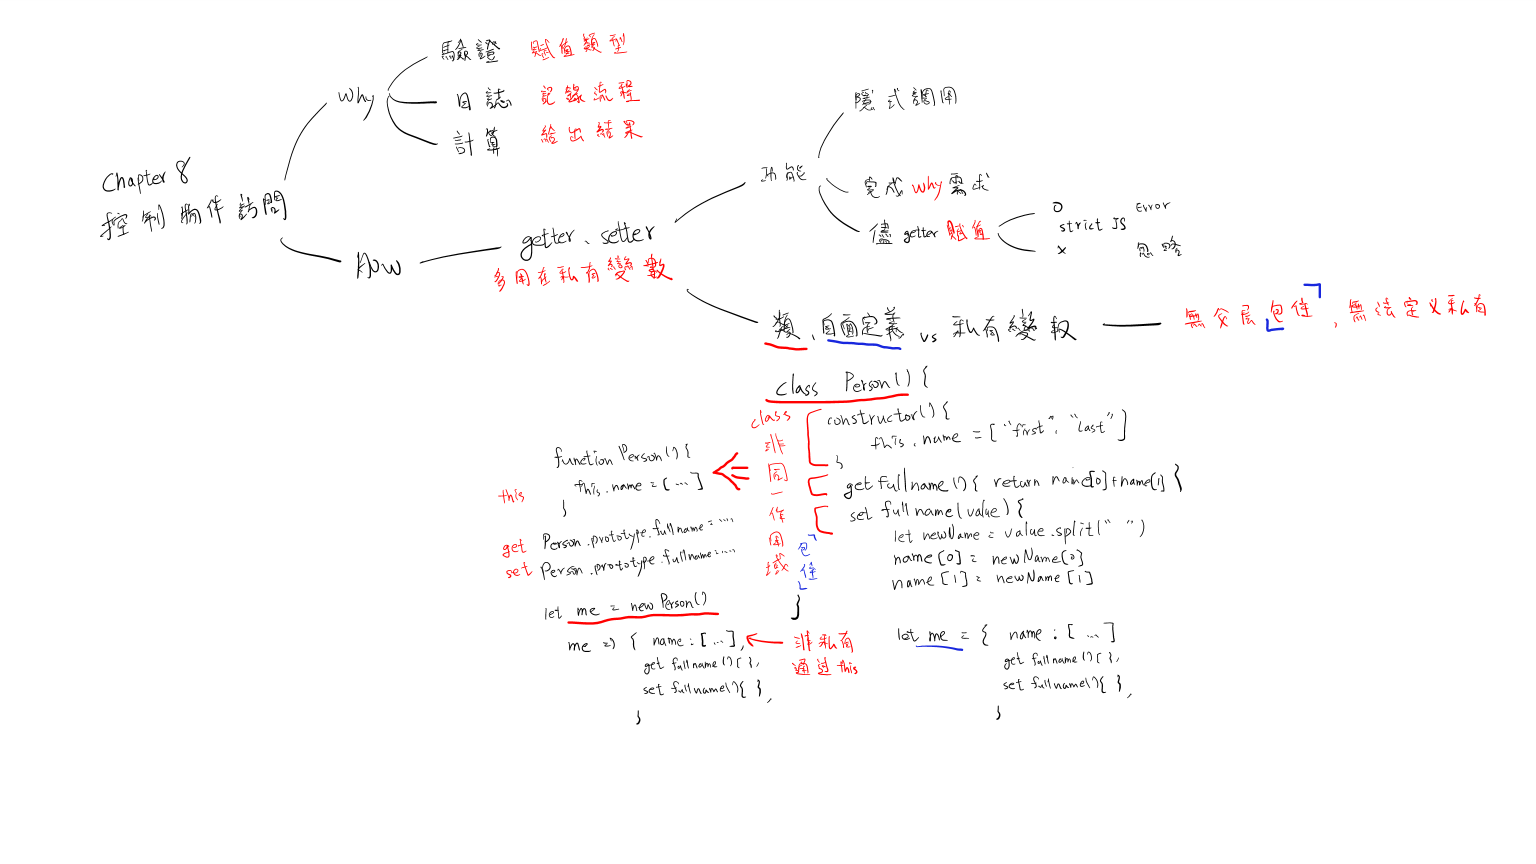 Chapter 8
控制物件訪問
Why
驗證 賦值類型
日誌 記錄流程
計算 給出結果
How
getter、setter
多用在私有變數
功能
隱式調用
完成 why 需求
儘 getter 賦值
O Error
strict JS
x 忽略
類、自面定義 vs 私有變取
無父层包住，無法定义私有
class Person() {
constructor() {
this.name = ["first", "last"]
}
get fullname () { return name[0]+name[1] }
set fullname(value) {
let newName = value.split(" ")
name[0] = newName[0]
name[1] = newName[1]
}
class
非同一作用域
包住
function Person() {
this this.name = [...]
}
get Person.prototype.fullname = ....
set Person.prototype.fullname = ....
let me = new Person()
me => { name : [...],
get fullname () { },
set fullname() { },
}
非私有
通过 this
let me = { name : [ ...]
get fullname () { },
set fullname() { },
}